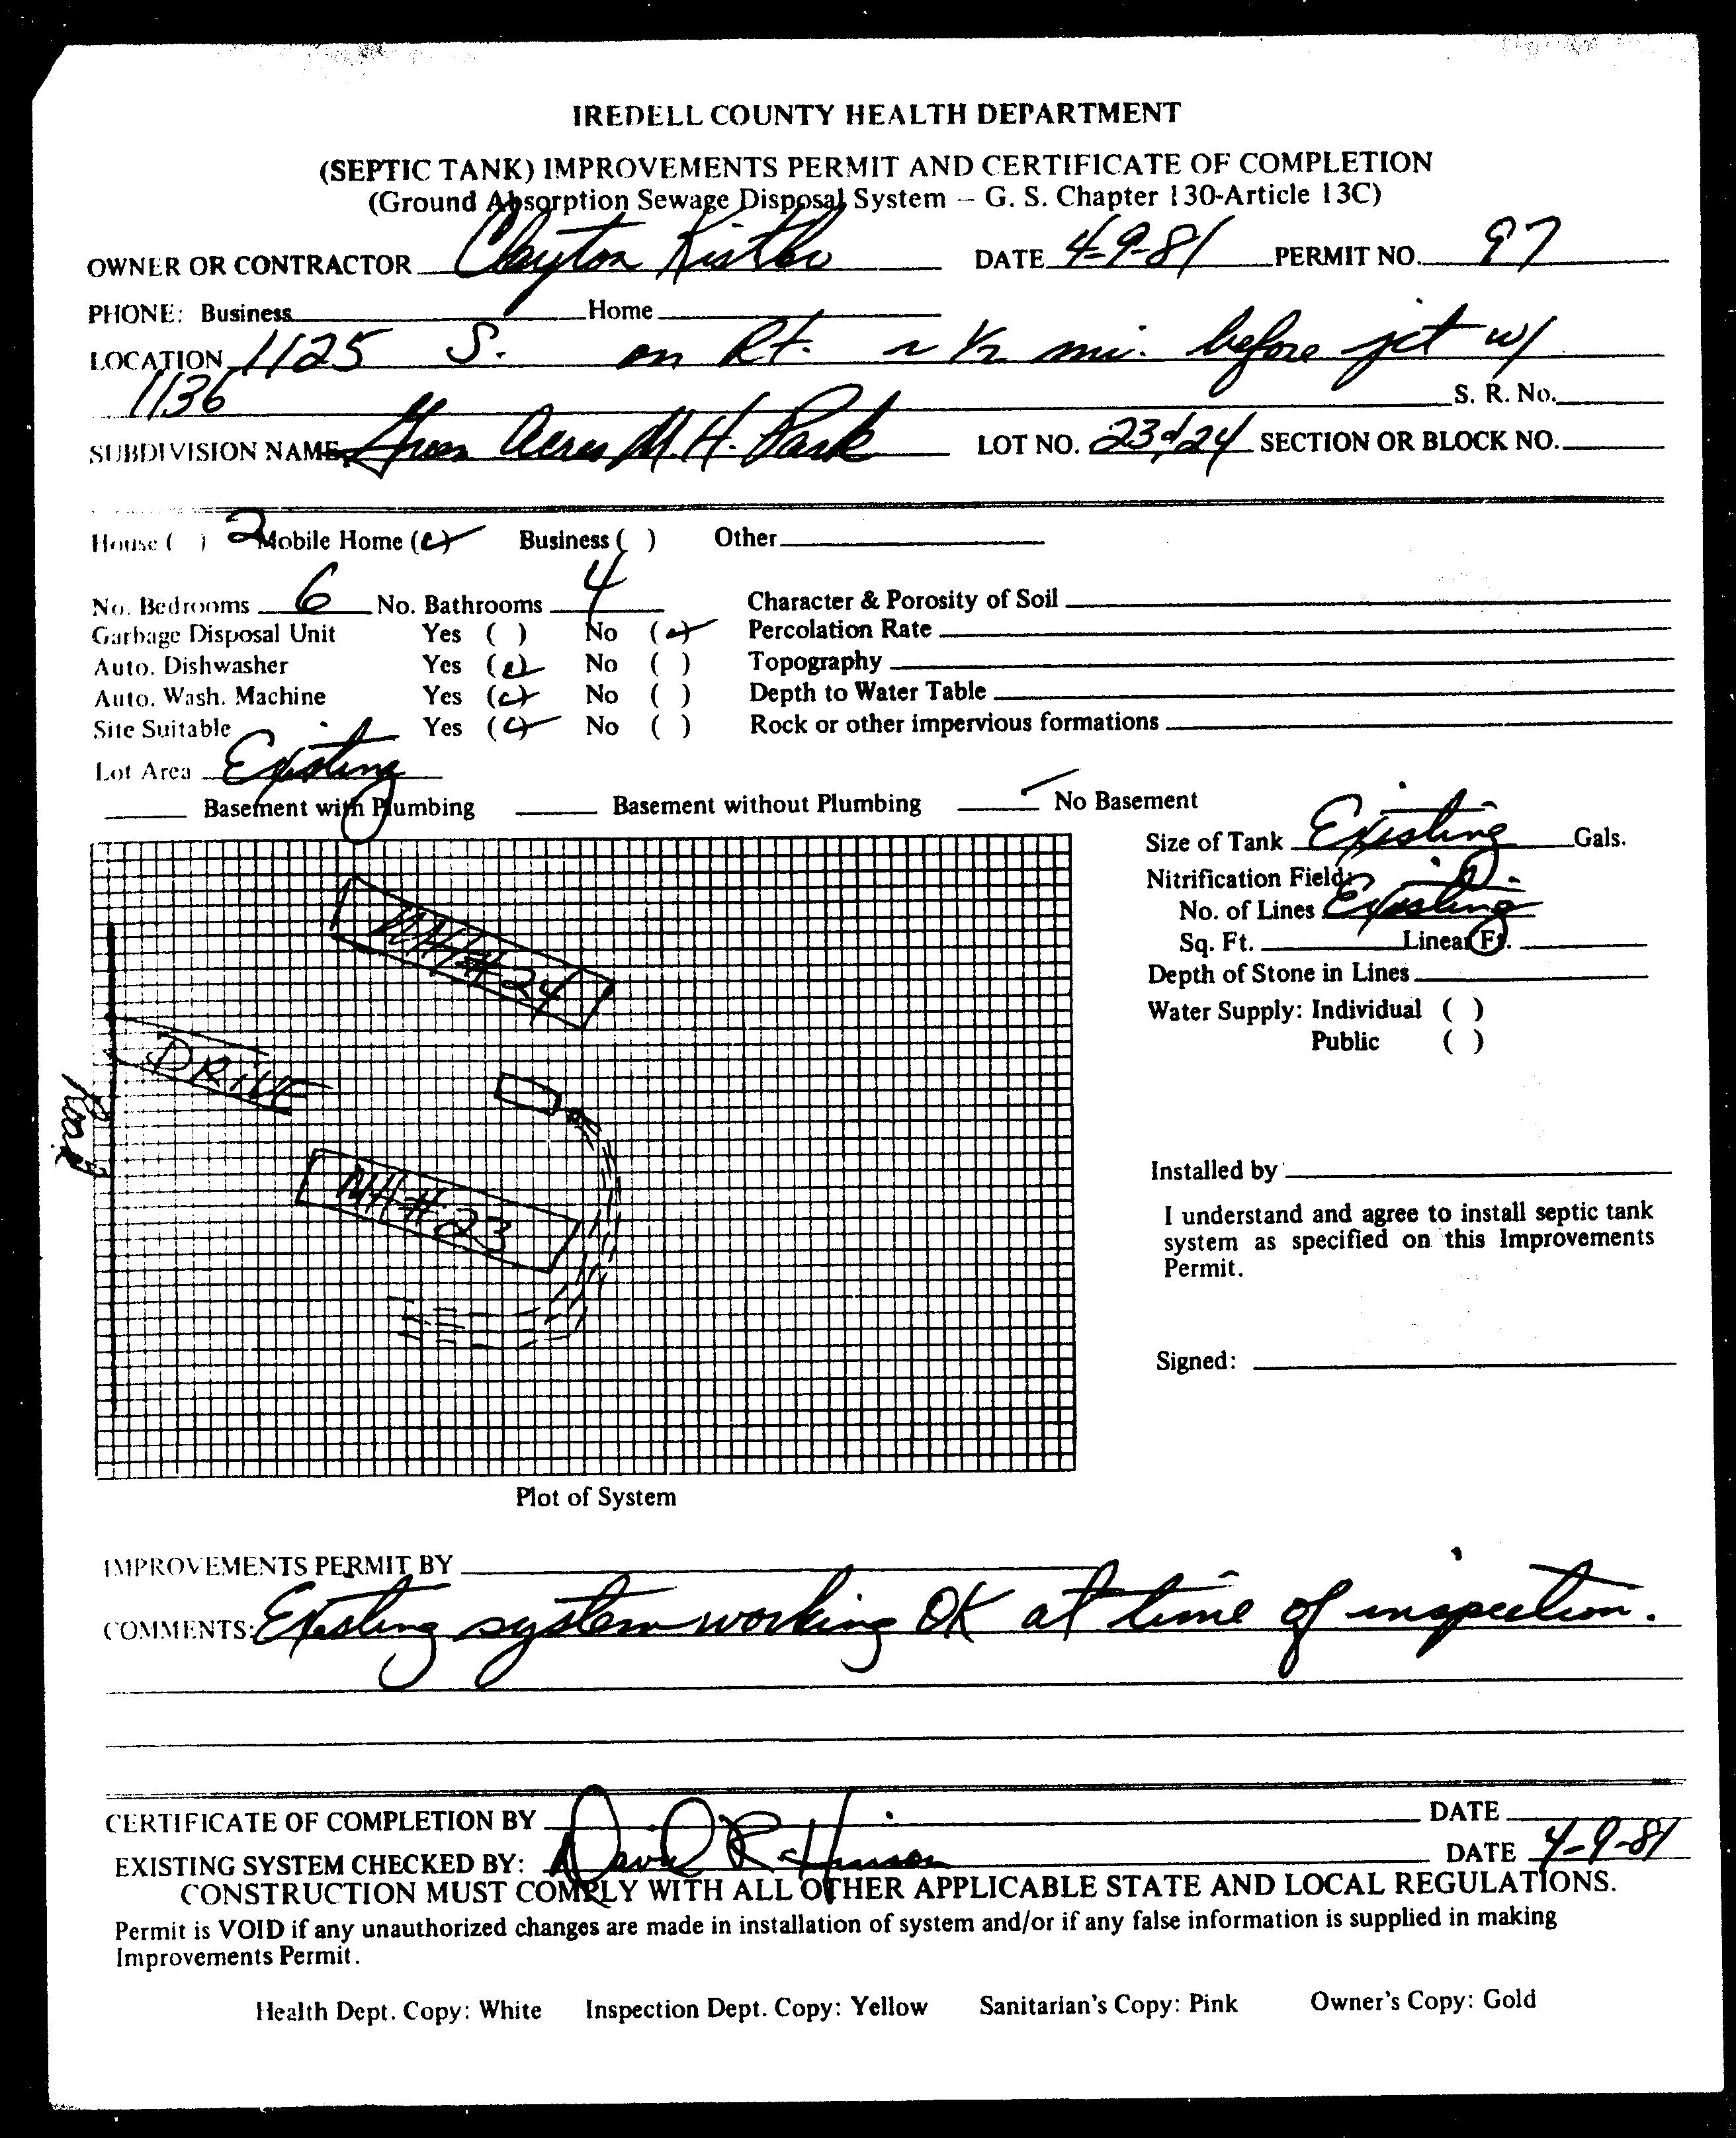 IREDELL COUNTY HEALTH DEPARTMENT
(SEPTIC TANK) IMPROVEMENTS PERMIT AND CERTIFICATE OF COMPLETION
(Ground Absorption Sewage Disposal System – G. S. Chapter 130-Article 13C)
OWNER OR CONTRACTOR Clayton DATE 4-9-81 PERMIT NO. 97
PHONE: Business Home
LOCATION 1125 S. on Rt. ~ 1/2 mi. before jct w/
1136 S. R. No.
SUBDIVISION NAME Green Acres M.H. Park LOT NO. 23 & 24 SECTION OR BLOCK NO.
House ( ) 2 Mobile Home (✓) Business ( ) Other
No. Bedrooms 6 No. Bathrooms 4 Character & Porosity of Soil
Garbage Disposal Unit Yes ( ) No (✓) Percolation Rate
Auto. Dishwasher Yes (✓) No ( ) Topography
Auto. Wash. Machine Yes (✓) No ( ) Depth to Water Table
Site Suitable Yes (✓) No ( ) Rock or other impervious formations
Lot Area Existing
Basement with Plumbing Basement without Plumbing ✓ No Basement
Size of Tank Existing Gals.
Nitrification Field:
No. of Lines Existing
Sq. Ft. Linear Ft.
Depth of Stone in Lines
Water Supply: Individual ( )
Public ( )
MH # 24
DRIVE
Road
MH # 23
Installed by
I understand and agree to install septic tank
system as specified on this Improvements
Permit.
Signed:
Plot of System
IMPROVEMENTS PERMIT BY
COMMENTS: Existing system working OK at time of inspection.
CERTIFICATE OF COMPLETION BY DATE
EXISTING SYSTEM CHECKED BY: David R. Hinson DATE 4-9-81
CONSTRUCTION MUST COMPLY WITH ALL OTHER APPLICABLE STATE AND LOCAL REGULATIONS.
Permit is VOID if any unauthorized changes are made in installation of system and/or if any false information is supplied in making
Improvements Permit.
Health Dept. Copy: White Inspection Dept. Copy: Yellow Sanitarian's Copy: Pink Owner's Copy: Gold